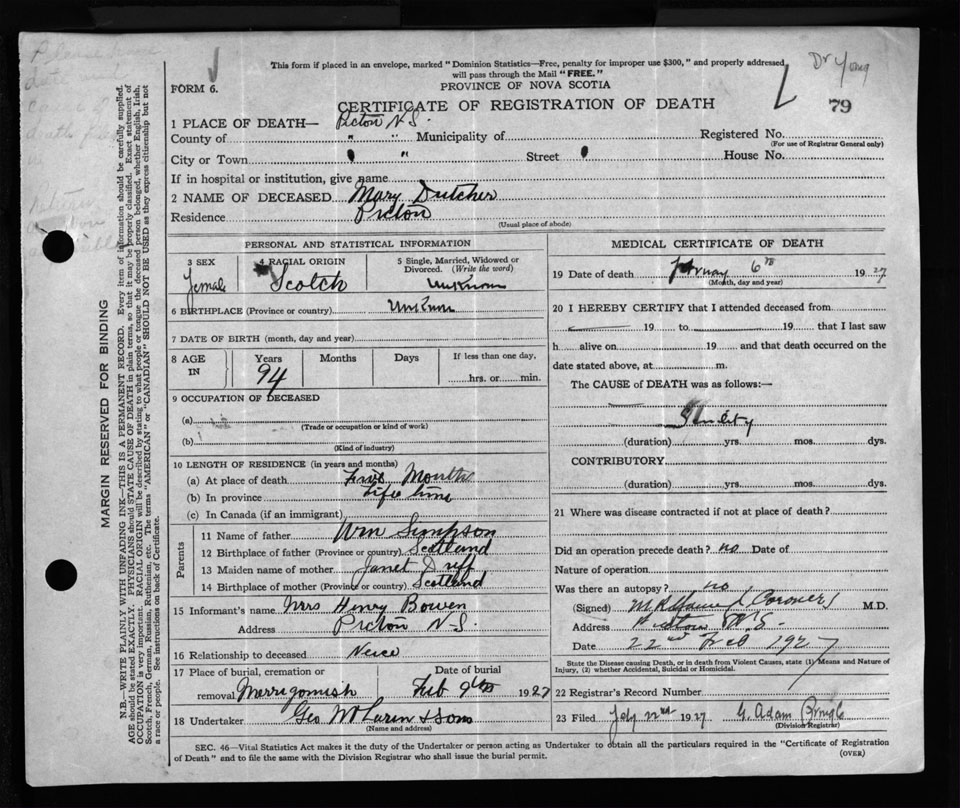 This form if placed in an envelope, marked "Dominion Statistics—Free, penalty for improper use $300," and properly addressed,
will pass through the Mail "FREE."
Dr Young
FORM 6.
PROVINCE OF NOVA SCOTIA
79
CERTIFICATE OF REGISTRATION OF DEATH
1 PLACE OF DEATH— Pictou N.S.
County of " " Municipality of Registered No.
(For use of Registrar General only)
City or Town " Street House No.
If in hospital or institution, give name
2 NAME OF DECEASED Mary Dutcher
Residence Pictou
(Usual place of abode)
PERSONAL AND STATISTICAL INFORMATION
3 SEX Female
4 RACIAL ORIGIN Scotch
5 Single, Married, Widowed or Divorced. (Write the word)
6 BIRTHPLACE (Province or country)
7 DATE OF BIRTH (month, day and year)
8 AGE IN Years 94 Months Days If less than one day, hrs. or min.
9 OCCUPATION OF DECEASED
(a)
(Trade or occupation or kind of work)
(b)
(Kind of industry)
10 LENGTH OF RESIDENCE (in years and months)
(a) At place of death Months
(b) In province Life time
(c) In Canada (if an immigrant)
Parents
11 Name of father Wm Simpson
12 Birthplace of father (Province or country) Scotland
13 Maiden name of mother Janet
14 Birthplace of mother (Province or country) Scotland
15 Informant's name Mrs Henry Bowen
Address Pictou N-S.
16 Relationship to deceased Neice
17 Place of burial, cremation or removal Merrigomish Date of burial Feb 9th 1927
18 Undertaker Geo & Sons
(Name and address)
MEDICAL CERTIFICATE OF DEATH
19 Date of death 6th 1927
(Month, day and year)
20 I HEREBY CERTIFY that I attended deceased from
19 to 19 that I last saw
h alive on 19 and that death occurred on the
date stated above, at m.
The CAUSE of DEATH was as follows:—
Senility
(duration) yrs. mos. dys.
CONTRIBUTORY
(duration) yrs. mos. dys.
21 Where was disease contracted if not at place of death?
Did an operation precede death? no Date of
Nature of operation
Was there an autopsy? no
(Signed) (Coroner) M.D.
Address Pictou N.S.
Date 22nd Feb 1927
State the Disease causing Death, or in death from Violent Causes, state (1) Means and Nature of
Injury, (2) whether Accidental, Suicidal or Homicidal.
22 Registrar's Record Number
23 Filed 22nd 1927 G. Adam
(Division Registrar)
SEC. 46—Vital Statistics Act makes it the duty of the Undertaker or person acting as Undertaker to obtain all the particulars required in the "Certificate of Registration
of Death" and to file the same with the Division Registrar who shall issue the burial permit.
(OVER)
MARGIN RESERVED FOR BINDING
N.B.—WRITE PLAINLY WITH UNFADING INK—THIS IS A PERMANENT RECORD. Every item of information should be carefully supplied.
AGE should be stated EXACTLY. PHYSICIANS should STATE CAUSE OF DEATH in plain terms, so that it may be properly classified. Exact statement of
OCCUPATION is very important. RACIAL ORIGIN will be described by stating to what people or tongue the deceased person belonged, whether English, Irish,
Scotch, French, German, Russian, Ruthenian, etc. The terms "AMERICAN" or "CANADIAN" SHOULD NOT BE USED as they express citizenship but not
a race or people. See instructions on back of Certificate.